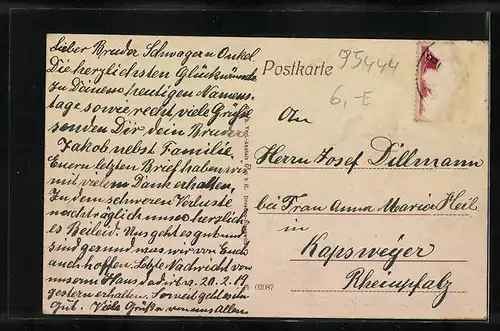 Lieber Bruder Schwager u Onkel
Die herzlichsten Glückwünsche
zu Deinem heutigen Namens-
tage sowie recht viele Grüße
senden Dir dein Bruder
Jakob nebst Familie.
Euern letzten Brief haben wir
mit vielem Dank erhalten,
In dem schweren Verluste
nachträglich unser herzlich-
es Beileid. Uns geht es gut und
sind gesund was wir von Euch
auch hoffen. Letzte Nachricht von
unserm Hans 20.2.19
gestern erhalten. Soweit geht es
Gut. Viele Grüße von uns Allen
Postkarte
95444
6,-E
An
Herrn Josef Dillmann
bei Frau Anna Maria Heil
in
Kapsweyer
Rheinpfalz
02087